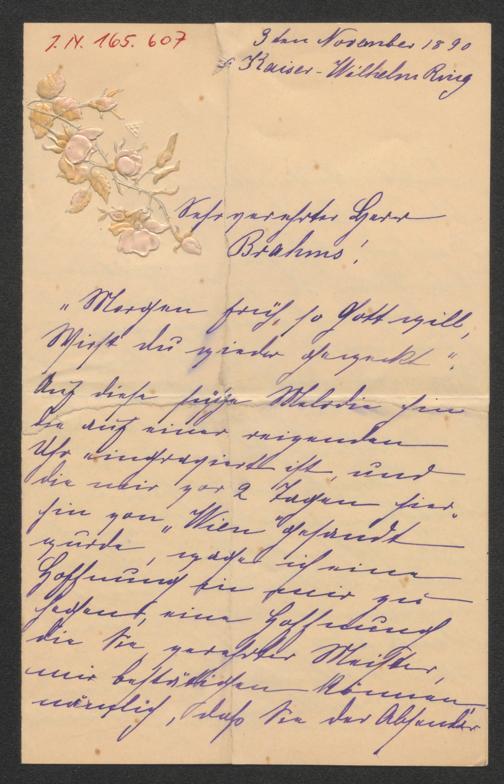 J. N. 165.607
3ten November 1890
Kaiser-Wilhelm Ring
Sehr verehrter Herr
Brahms!
„Morgen früh, so Gott will,
Wirst du wieder geweckt“.
Auf diese süße Melodie hin
die auf einer reizenden
Uhr eingraviert ist, und
die mir vor 2 Tagen hier-
hin von Wien gesandt
wurde, wage ich eine
Hoffnung in mir zu
hegen, eine Hoffnung
die Sie, verehrter Meister,
mir bestättigen können
nämlich, daß Sie der Absender